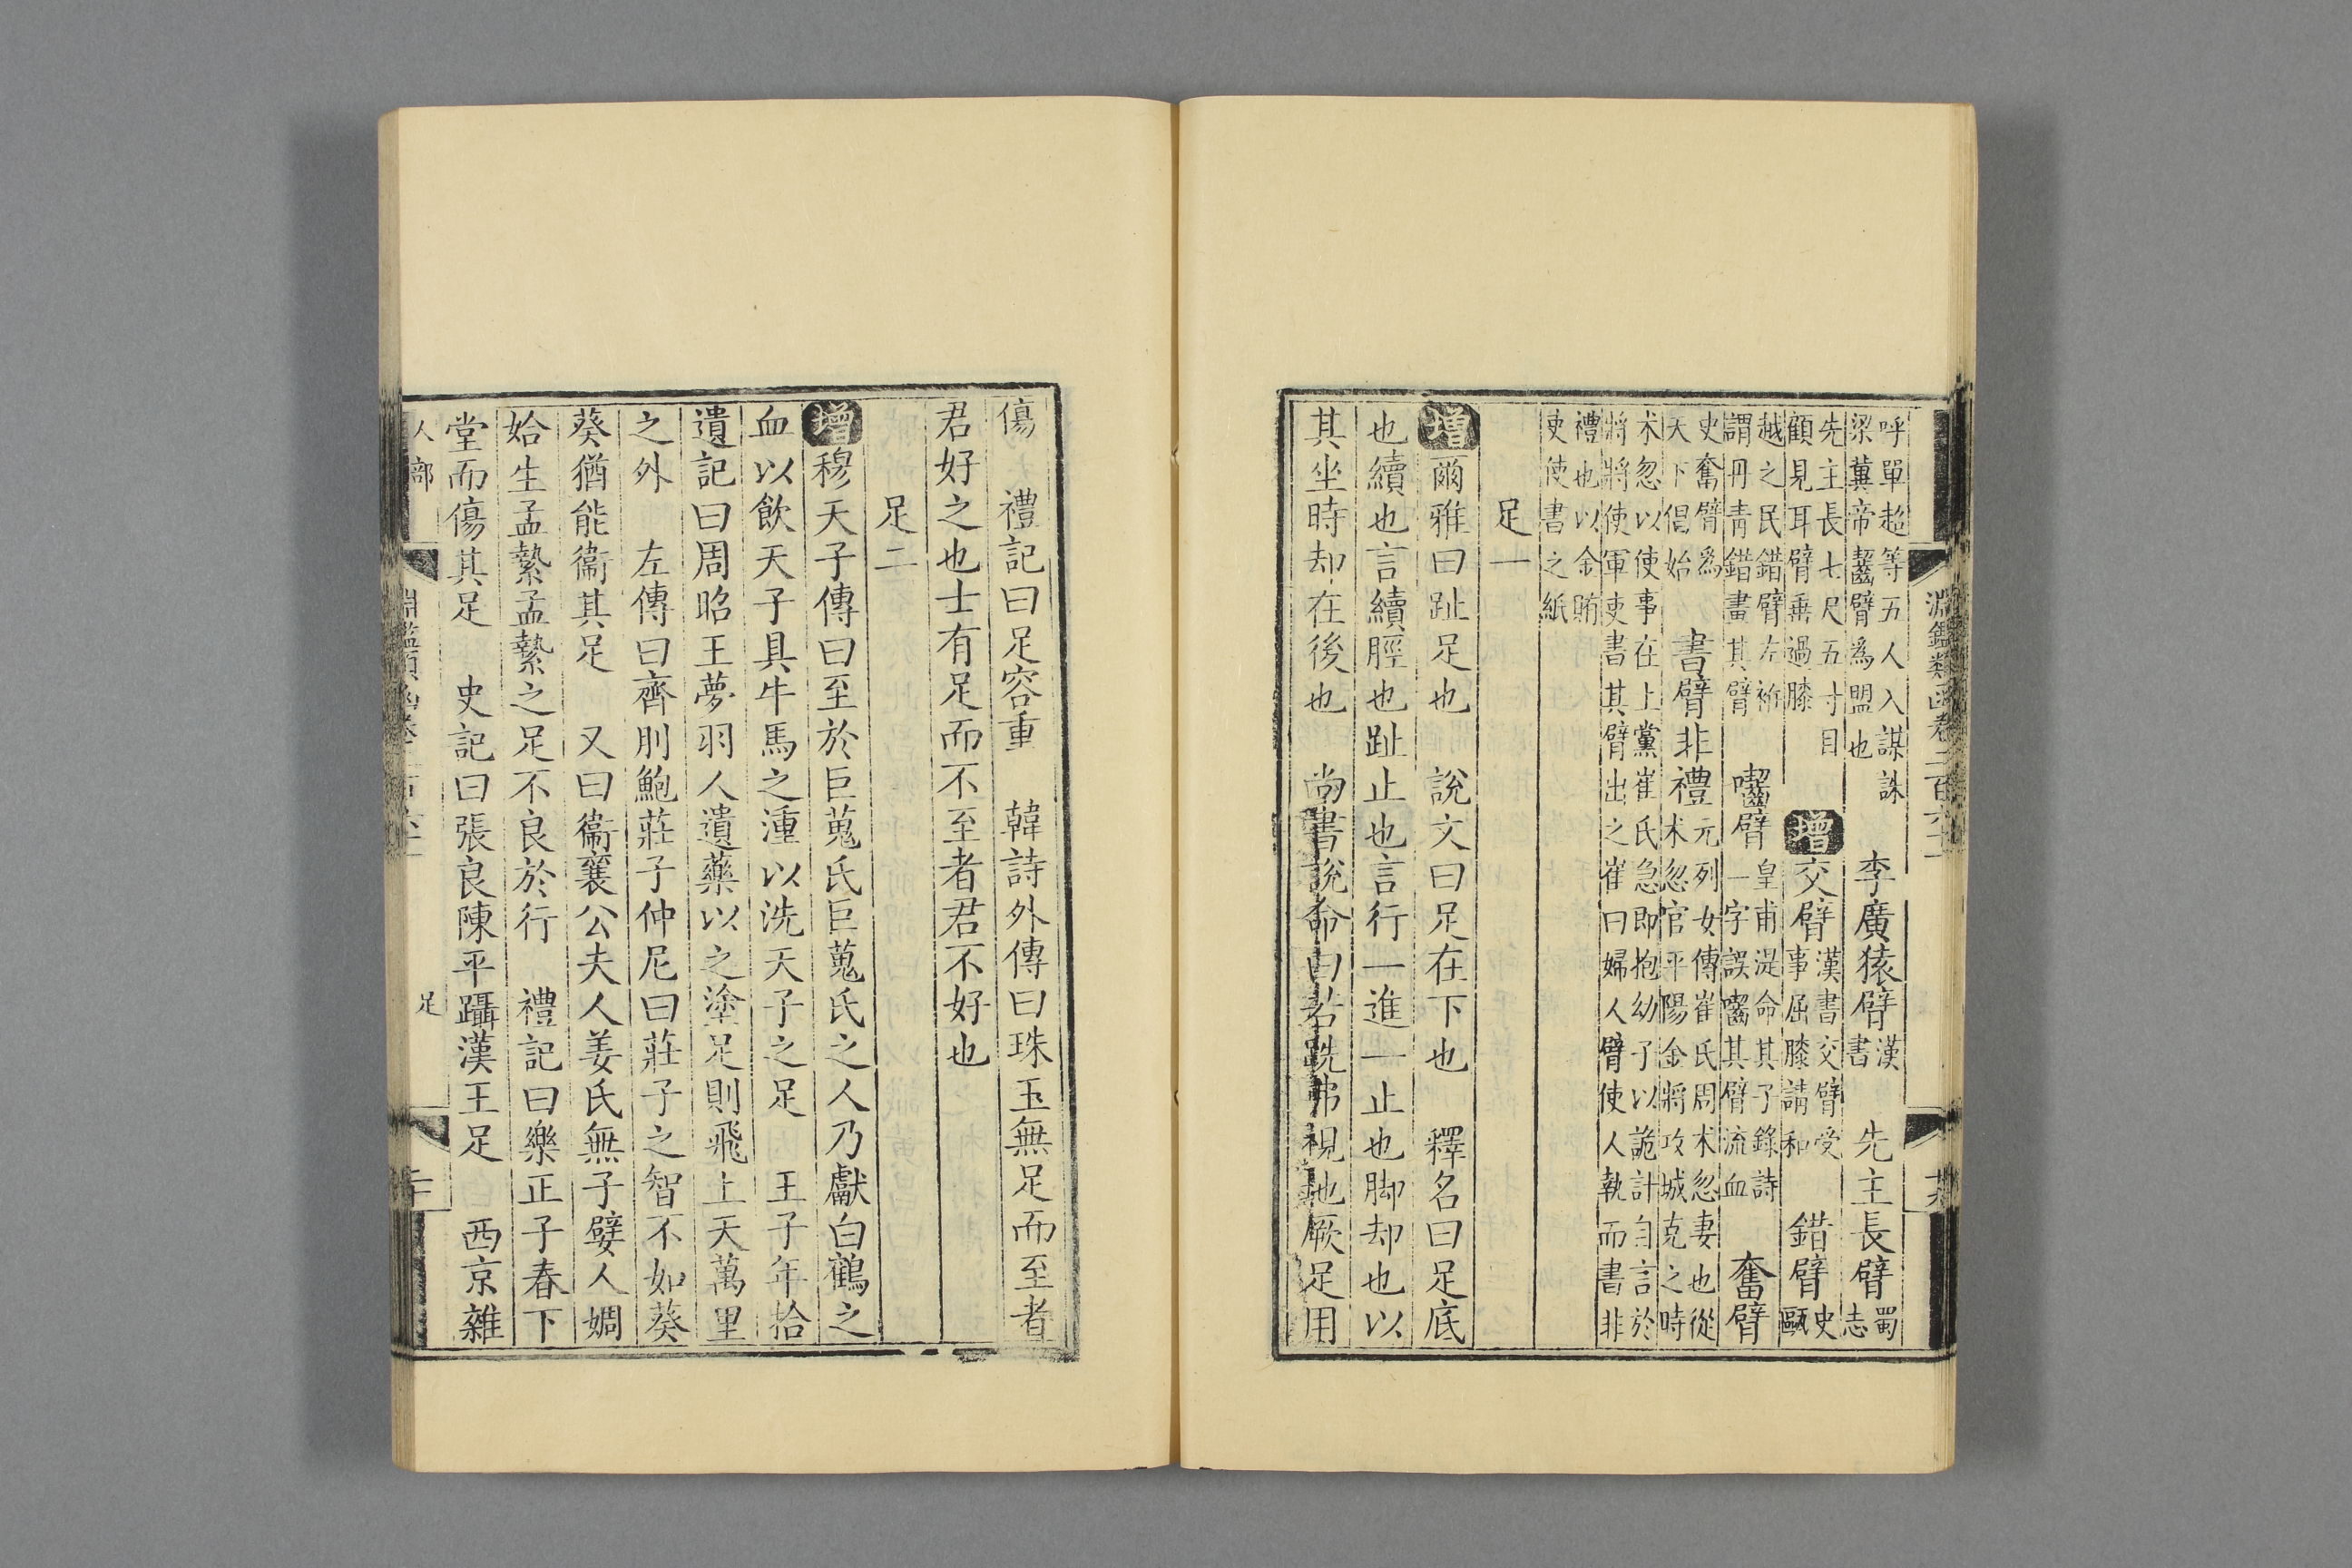 淵鑑類函卷二百六十一
呼單超等五人入謀誅梁冀帝齧臂為盟也 李廣猿臂漢書 先主長臂蜀志
先主長七尺五寸目顧見耳臂垂過膝 增交臂漢書交臂受事屈膝請和 錯臂史甌
越之民錯臂左袵謂丹青錯畫其臂 囓臂皇甫湜命其子錄詩一字誤囓其臂流血 奮臂
史奮臂為天下倡始 書臂非禮元列女傳崔氏周术忽妻也從术忽官平陽金將攻城克之時
术忽以使事在上黨崔氏急即抱幼子以詭計自言於將將使軍吏書其臂出之崔曰婦人臂使人執而書非
禮也以金賄吏使書之紙
足一
增爾雅曰趾足也 說文曰足在下也 釋名曰足底
也續也言續脛也趾止也言行一進一止也脚却也以
其坐時却在後也 尚書說命曰若跣弗視地厥足用
傷 禮記曰足容重 韓詩外傳曰珠玉無足而至者
君好之也士有足而不至者君不好也
足二
增穆天子傳曰至於巨蒐氏巨蒐氏之人乃獻白鶴之
血以飲天子具牛馬之湩以洗天子之足 王子年拾
遺記曰周昭王夢羽人遺藥以之塗足則飛上天萬里
之外 左傳曰齊刖鮑莊子仲尼曰莊子之智不如葵
葵猶能衞其足 又曰衞襄公夫人姜氏無子嬖人婤
姶生孟縶孟縶之足不良於行 禮記曰樂正子春下
堂而傷其足 史記曰張良陳平躡漢王足 西京雜
人部 淵鑑類函卷二百六十一 足